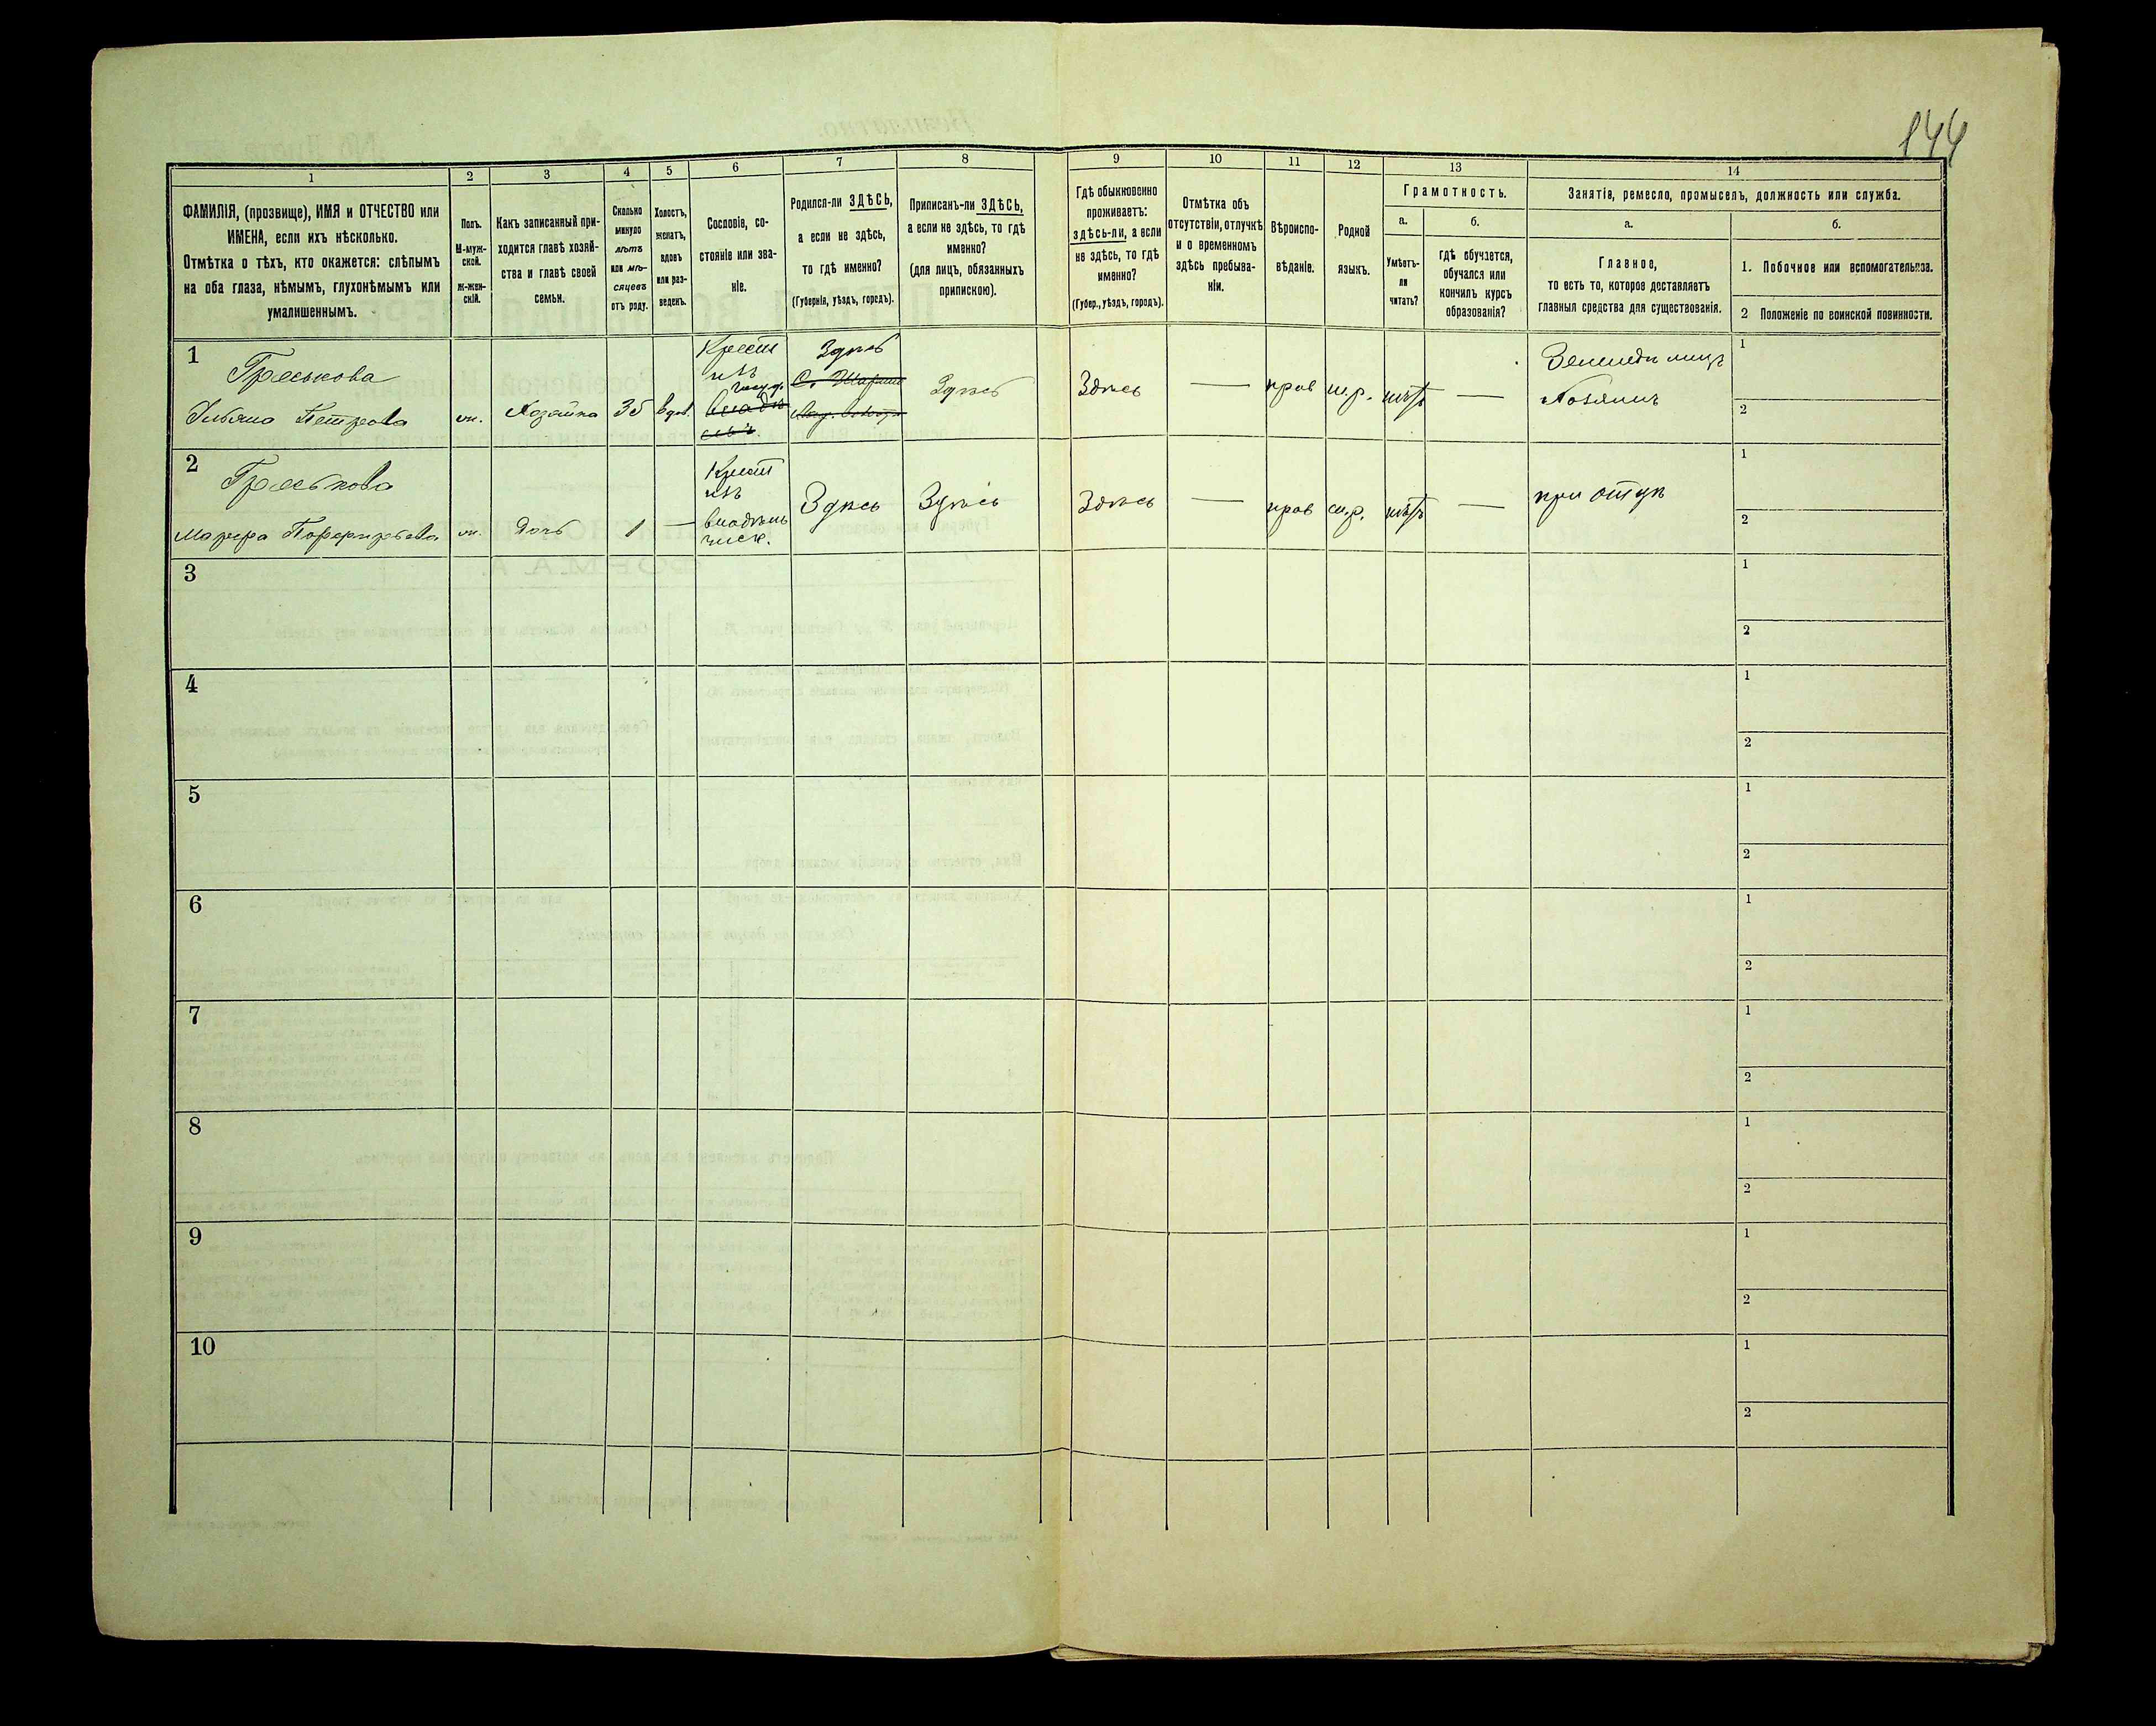 144
1
2
3
4
5
6
7
8
ФАМИЛІЯ, (прозвище), ИМЯ и ОТЧЕСТВО или
ИМЕНА, если ихъ нѣсколько.
Отмѣтка о тѣхъ, кто окажется: слѣпымъ
на оба глаза, нѣмымъ, глухонѣмымъ или
умалишеннымъ.
Полъ.
М-муж-
ской.
Ж-жен-
скій.
Какъ записанный при-
ходится главѣ хозяй-
ства и главѣ своей
семьи.
Сколько
минуло
лѣтъ
или мѣ-
сяцевъ
отъ роду.
Холостъ,
женатъ,
вдовъ
или раз-
веденъ.
Сословіе, со-
стояніе или зва-
ніе.
Родился-ли ЗДѢСЬ,
а если не здѣсь,
то гдѣ именно?
(Губернія, уѣздъ, городъ).
Приписанъ-ли ЗДѢСЬ,
а если не здѣсь, то гдѣ
именно?
(для лицъ, обязанныхъ
припискою).
9
10
11
12
13
14
Гдѣ обыкновенно
проживаетъ:
здѣсь-ли, а если
не здѣсь, то гдѣ
именно?
(Губер., уѣздъ, городъ).
Отмѣтка объ
отсутствіи, отлучкѣ
и о временномъ
здѣсь пребыва-
ніи.
Вѣроиспо-
вѣданіе.
Родной
языкъ.
Грамотность.
а.
Умѣетъ-
ли
читать?
б.
гдѣ обучается,
обучался или
кончилъ курсъ
образованія?
Занятія, ремесло, промыселъ, должность или служба.
а.
Главное,
то есть то, которое доставляетъ
главныя средства для существованія.
б.
1. Побочное или вспомогательное.
2 Положеніе по воинской повинности.
1
Греськова
Ульяна Петрова
ж.
Хозяйка
35
вдов.
Крест
изъ
Здѣсь
Здѣсь
Здѣсь
—
прав
м.р.
нѣтъ
—
Хозяинъ
1
2
2
Греськова
Марфа Порфирьева
ж.
Дочь
1
—
Крест
изъ
Здѣсь
Здѣсь
Здѣсь
—
прав
м.р.
нѣтъ
—
при
1
2
3
1
2
4
1
2
5
1
2
6
1
2
7
1
2
8
1
2
9
1
2
10
1
2